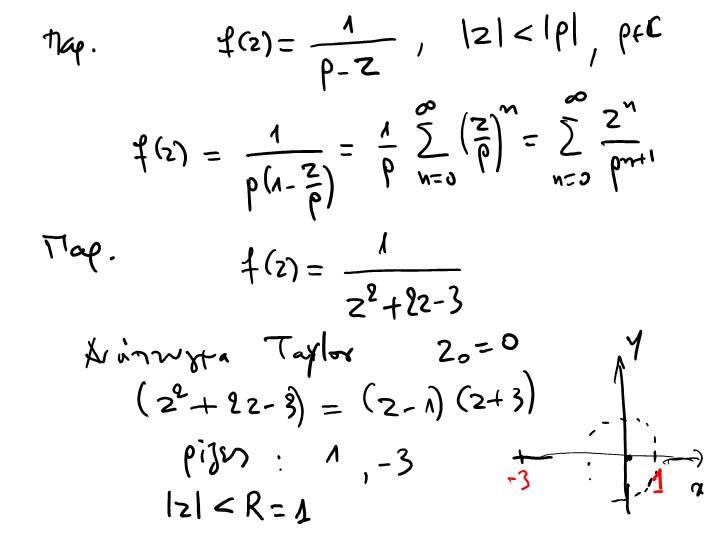 Παρ. f(z) = 1/(ρ - z) , |z| < |ρ| , ρ ∈ ℂ
f(z) = 1/(ρ(1 - z/ρ)) = 1/ρ ∑_{n=0}^{∞} (z/ρ)^n = ∑_{n=0}^{∞} z^n/ρ^{n+1}
Παρ. f(z) = 1/(z² + 2z - 3)
Ανάπτυγμα Taylor z₀ = 0
(z² + 2z - 3) = (z - 1)(z + 3)
ρίζες : 1 , -3
|z| < R = 1
y
-3 1 x